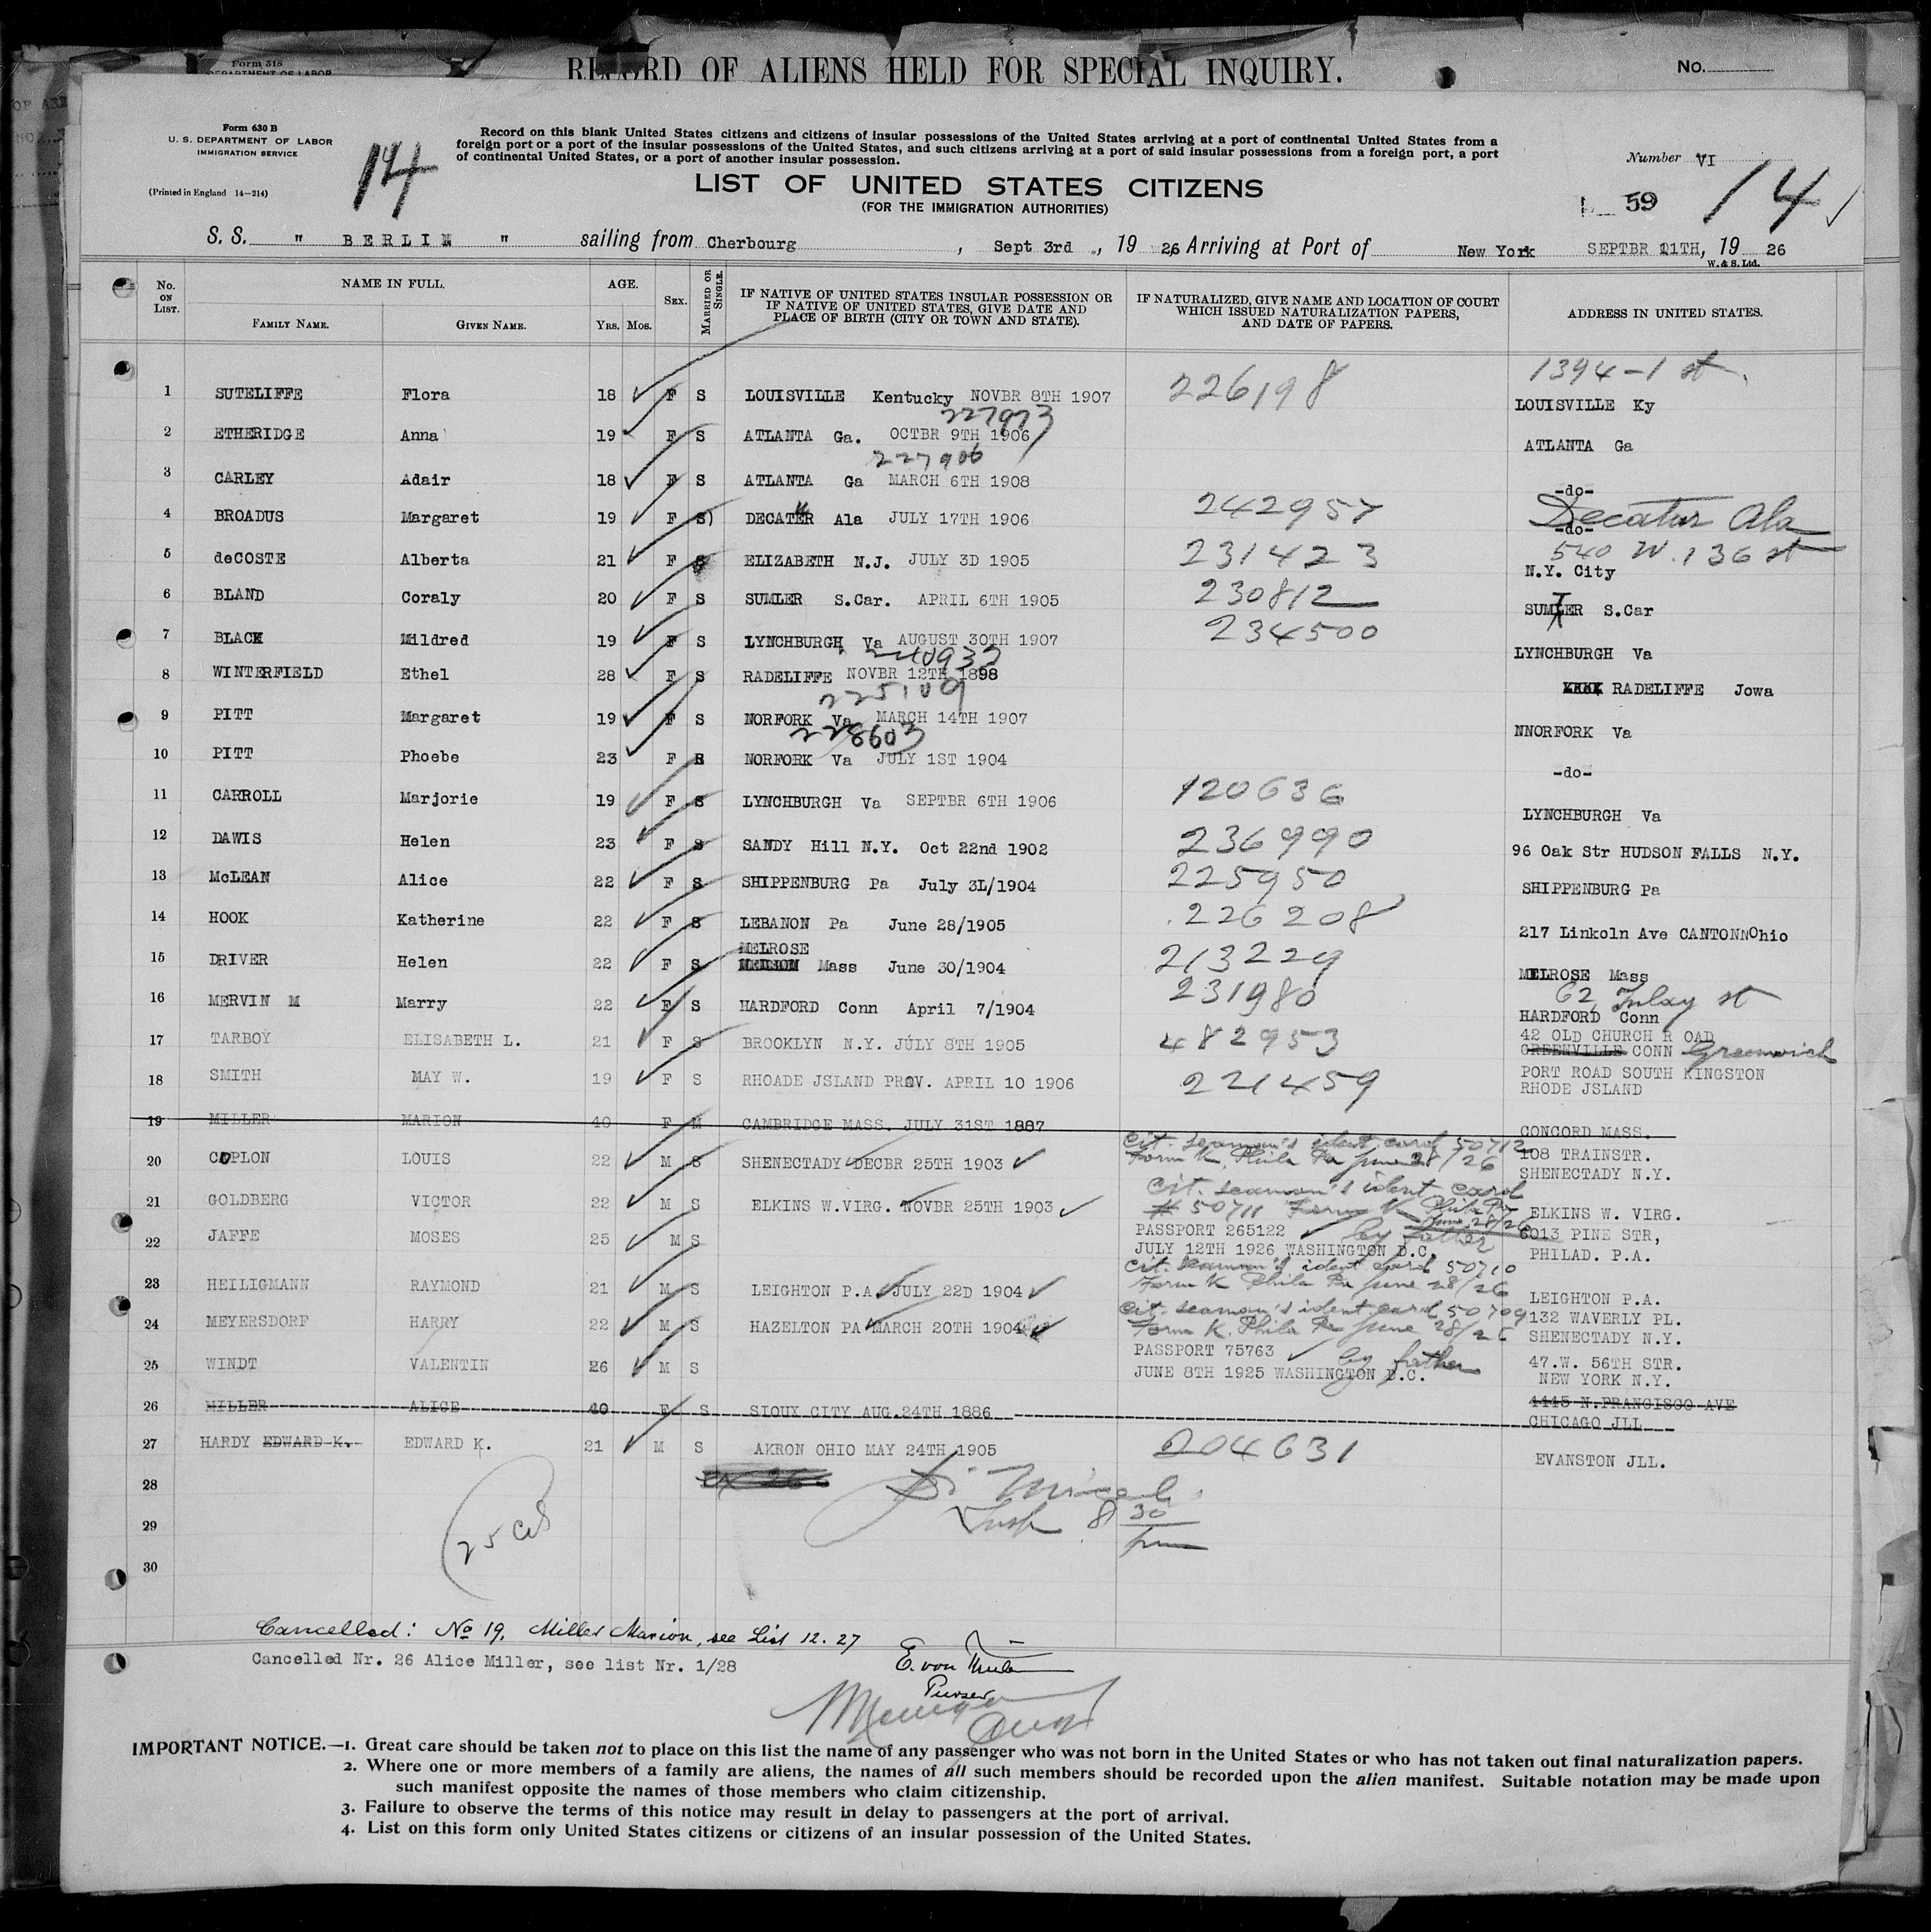 Form 518
DEPARTMENT OF LABOR
RECORD OF ALIENS HELD FOR SPECIAL INQUIRY.
No.
Form 630 B
U. S. DEPARTMENT OF LABOR
IMMIGRATION SERVICE
(Printed in England 14—214)
14
Record on this blank United States citizens and citizens of insular possessions of the United States arriving at a port of continental United States from a
foreign port or a port of the insular possessions of the United States, and such citizens arriving at a port of said insular possessions from a foreign port, a port
of continental United States, or a port of another insular possession.
LIST OF UNITED STATES CITIZENS
(FOR THE IMMIGRATION AUTHORITIES)
Number VI
59
14
S. S. " BERLIN " sailing from Cherbourg, Sept 3rd, 1926, Arriving at Port of New York SEPTBR 11TH, 1926
W. & S. Ltd.
No. ON LIST.
NAME IN FULL.
FAMILY NAME. GIVEN NAME.
AGE.
YRS. MOS.
SEX.
MARRIED OR SINGLE.
IF NATIVE OF UNITED STATES INSULAR POSSESSION OR
IF NATIVE OF UNITED STATES, GIVE DATE AND
PLACE OF BIRTH (CITY OR TOWN AND STATE).
IF NATURALIZED, GIVE NAME AND LOCATION OF COURT
WHICH ISSUED NATURALIZATION PAPERS,
AND DATE OF PAPERS.
ADDRESS IN UNITED STATES.
1394-1 st
1 SUTELIFFE Flora 18 F S LOUISVILLE Kentucky NOVBR 8TH 1907 226198 LOUISVILLE Ky
227973
2 ETHERIDGE Anna 19 F S ATLANTA Ga. OCTBR 9TH 1906 ATLANTA Ga
227906
3 CARLEY Adair 18 F S ATLANTA Ga MARCH 6TH 1908 -do-
4 BROADUS Margaret 19 F S) DECATER Ala JULY 17TH 1906 242957 Decatur Ala -do-
5 deCOSTE Alberta 21 F S ELIZABETH N.J. JULY 3D 1905 231423 540 W. 136 st
N.Y. City
6 BLAND Coraly 20 F S SUMLER S.Car. APRIL 6TH 1905 230812 SUMLER S.Car
7 BLACK Mildred 19 F S LYNCHBURGH Va AUGUST 30TH 1907 234500 LYNCHBURGH Va
240932
8 WINTERFIELD Ethel 28 F S RADELIFFE NOVBR 12TH 1898 RADELIFFE Jowa
225109
9 PITT Margaret 19 F S NORFORK Va MARCH 14TH 1907 NNORFORK Va
228603
10 PITT Phoebe 23 F S NORFORK Va JULY 1ST 1904 -do-
11 CARROLL Marjorie 19 F S LYNCHBURGH Va SEPTBR 6TH 1906 120636 LYNCHBURGH Va
12 DAWIS Helen 23 F S SANDY Hill N.Y. Oct 22nd 1902 236990 96 Oak Str HUDSON FALLS N.Y.
13 McLEAN Alice 22 F S SHIPPENBURG Pa July 3L/1904 225950 SHIPPENBURG Pa
14 HOOK Katherine 22 F S LEBANON Pa June 28/1905 226208 217 Linkoln Ave CANTONNOhio
MELROSE
15 DRIVER Helen 22 F S Mass June 30/1904 213229 MELROSE Mass
16 MERVIN M Marry 22 F S HARDFORD Conn April 7/1904 231980 62 Inlay st
HARDFORD Conn
17 TARBOY ELISABETH L. 21 F S BROOKLYN N.Y. JULY 8TH 1905 482953 42 OLD CHURCH R OAD
GREENVILLE CONN Greenwich
18 SMITH MAY W. 19 F S RHOADE JSLAND PROV. APRIL 10 1906 221459 PORT ROAD SOUTH KINGSTON
RHODE JSLAND
19 MILLER MARION 40 F M CAMBRIDGE MASS. JULY 31ST 1887 CONCORD MASS.
20 COPLON LOUIS 22 M S SHENECTADY DECBR 25TH 1903 Cit. seaman's ident card 50712
Form K, Phila Pa June 28/26 108 TRAINSTR.
SHENECTADY N.Y.
21 GOLDBERG VICTOR 22 M S ELKINS W.VIRG. NOVBR 25TH 1903 Cit. seaman's ident card
# 50711 Form K Phila Pa June 28/26 ELKINS W. VIRG.
22 JAFFE MOSES 25 M S PASSPORT 265122 by father
JULY 12TH 1926 WASHINGTON D.C. 6013 PINE STR,
PHILAD. P.A.
23 HEILIGMANN RAYMOND 21 M S LEIGHTON P.A. JULY 22D 1904 Cit. seaman's ident card 50710
Form K Phila Pa June 28/26 LEIGHTON P.A.
24 MEYERSDORF HARRY 22 M S HAZELTON PA MARCH 20TH 1904 Cit. seaman's ident card 50709
Form K. Phila Pa June 28/26 1132 WAVERLY PL.
SHENECTADY N.Y.
25 WINDT VALENTIN 26 M S PASSPORT 75763 by father
JUNE 8TH 1925 WASHINGTON D.C. 47.W. 56TH STR.
NEW YORK N.Y.
26 MILLER ALICE 40 F S SIOUX CITY AUG.24TH 1886 4445 N.FRANCISCO AVE
CHICAGO JLL
27 HARDY EDWARD K. EDWARD K. 21 M S AKRON OHIO MAY 24TH 1905 204631 EVANSTON JLL.
28
29
30
25 cit
Insp 8 30
pm
Cancelled: No 19. Miller Marion, see List 12. 27
Cancelled Nr. 26 Alice Miller, see list Nr. 1/28
E. von
Purser
IMPORTANT NOTICE.—1. Great care should be taken not to place on this list the name of any passenger who was not born in the United States or who has not taken out final naturalization papers.
2. Where one or more members of a family are aliens, the names of all such members should be recorded upon the alien manifest. Suitable notation may be made upon
such manifest opposite the names of those members who claim citizenship.
3. Failure to observe the terms of this notice may result in delay to passengers at the port of arrival.
4. List on this form only United States citizens or citizens of an insular possession of the United States.